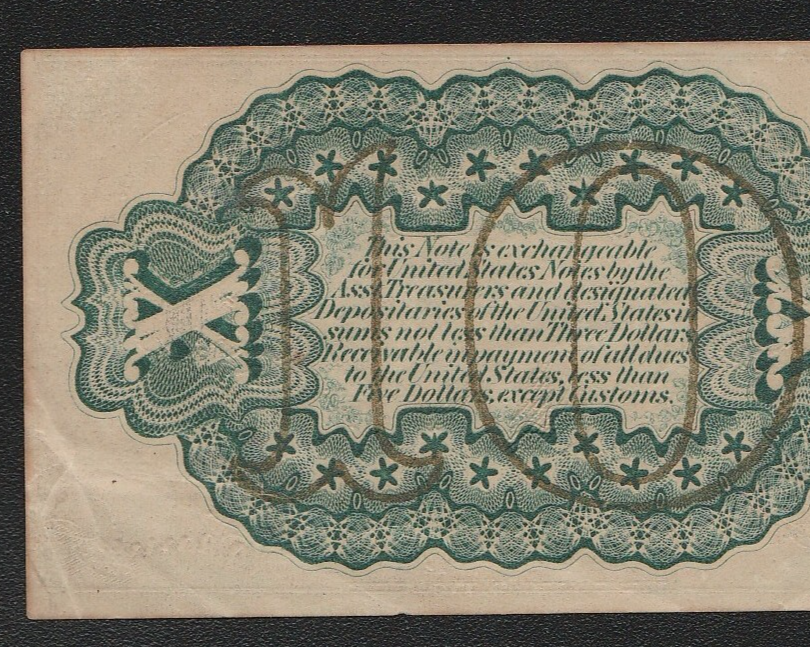 X
10
This Note is exchangeable
for United States Notes by the
Asst Treasurers and designated
Depositaries of the United States in
sums not less than Three Dollars
Receivable in payment of all dues
to the United States, less than
Five Dollars, except Customs.